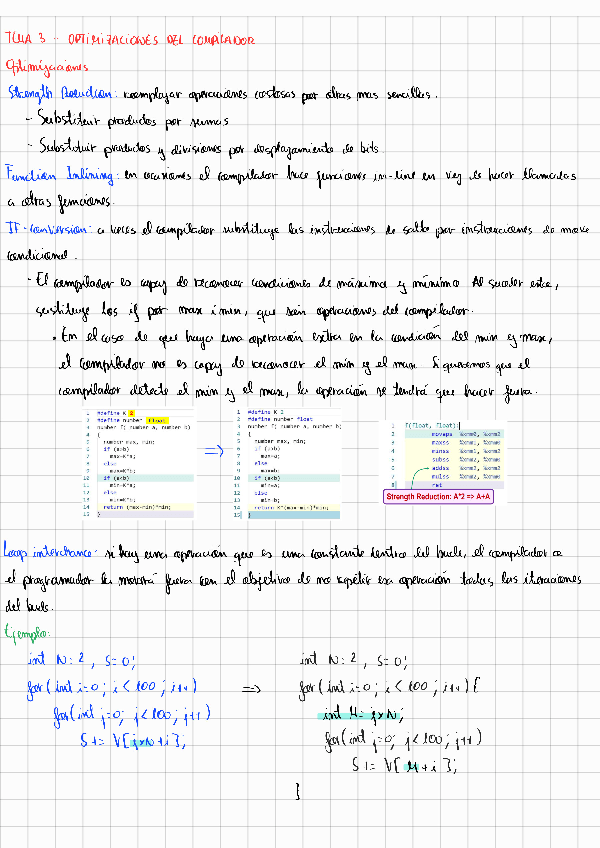 TEMA 3 - OPTIMIZACIONES DEL COMPILADOR
Optimizaciones
Strength Reduction: reemplazar operaciones costosas por otras mas sencillas.
- Substituir productos por sumas
- Substituir productos y divisiones por desplazamiento de bits.
Function Inlining: en ocasiones el compilador hace funciones in-line en vez de hacer llamadas
a otras funciones.
IF-conversion: a veces el compilador substituye las instrucciones de salto por instrucciones de move
condicional.
- El compilador es capaz de reconocer condiciones de máximo y mínimo. Al suceder esto,
sustituye los if por max i min, que son operaciones del compilador.
• En el caso de que haya una operación extra en la condición del min y max,
el compilador no es capaz de reconocer el min y el max. Si queremos que el
compilador detecte el min y el max, la operación se tendrá que hacer fuera.
1 #define K 2
2 #define number float
3 number f( number a, number b)
4 {
5 number max, min;
6 if (a>b)
7 max=K*a;
8 else
9 max=K*b;
10 if (a<b)
11 min=K*a;
12 else
13 min=K*b;
14 return (max-min)*min;
15 }
=>
1 #define K 2
2 #define number float
3 number f( number a, number b)
4 {
5 number max, min;
6 if (a>b)
7 max=a;
8 else
9 max=b;
10 if (a<b)
11 min=a;
12 else
13 min=b;
14 return K*(max-min)*min;
15 }
1 f(float, float):
2 movaps %xmm0, %xmm2
3 maxss %xmm1, %xmm2
4 minss %xmm1, %xmm0
5 subss %xmm0, %xmm2
6 addss %xmm2, %xmm2
7 mulss %xmm2, %xmm0
8 ret
Strength Reduction: A*2 => A+A
Loop interchance: si hay una operación que es una constante dentro del bucle, el compilador o
el programador la moverá fuera con el objetivo de no repetir esa operación todas las iteraciones
del bucle.
Ejemplo:
int N=2, S=0;
for(int i=0; i<100; i++)
for(int j=0; j<100; j++)
S+= V[j×N+i];
=>
int N=2, S=0;
for(int i=0; i<100; i++){
int M=j×N;
for(int j=0; j<100; j++)
S+= V[M+i];
}